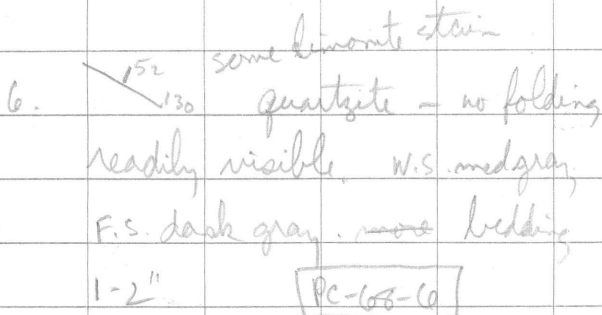 some limonite stain
6. 52 130 quartzite - no folding
readily visible. W.S. med gray,
F.S. dark gray. more bedding
1-2" PC-68-6